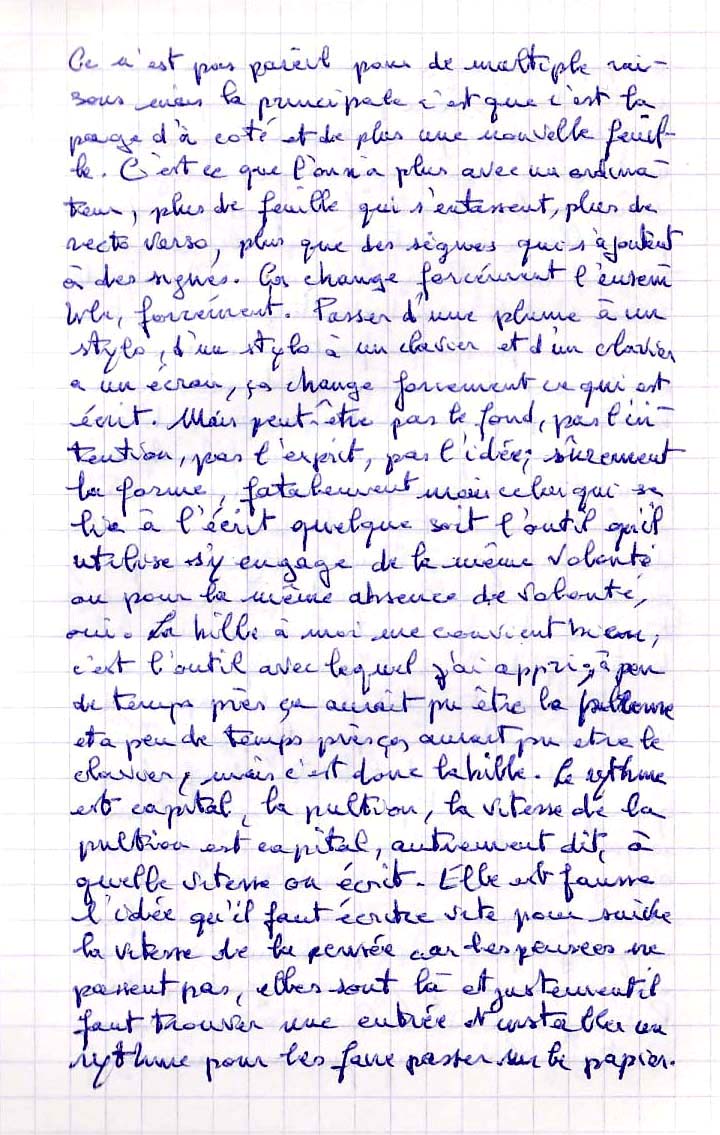 Ce n'est pas pareil pour de multiple rai-
sons mais la principale c'est que c'est la
page d'à coté et de plus une nouvelle feuil-
le. C'est ce que l'on n'a plus avec un ordina-
teur, plus de feuille qui s'entassent, plus de
recto verso, plus que des signes qui s'ajoutent
à des signes. Ça change forcément l'ensem
ble, forcément. Passer d'une plume à un
stylo, d'un stylo à un clavier et d'un clavier
a un écran, ça change forcement ce qui est
écrit. Mais peut-être pas le fond, pas l'in-
tention, pas l'esprit, pas l'idée; sûrement
la forme, fatalement mais celui qui se
lie à l'écrit quelque soit l'outil qu'il
utilise s'y engage de la même volonté
ou pour la même absence de volonté,
oui. La bille à moi me convient bien,
c'est l'outil avec lequel j'ai appris, à peu
de temps près ça aurait pu être la plume
et a peu de temps près ça aurait pu etre le
clavier, mais c'est donc la bille. Le rythme
est capital, la pultion, la vitesse de la
pultion est capital, autrement dit, à
quelle vitesse on écrit. Elle est fausse
l'idée qu'il faut écrire vite pour suivre
la vitesse de la pensée car les pensées ne
passent pas, elles sont là et justement il
faut trouver une entrée d'installer un
rythme pour les faire passer sur le papier.